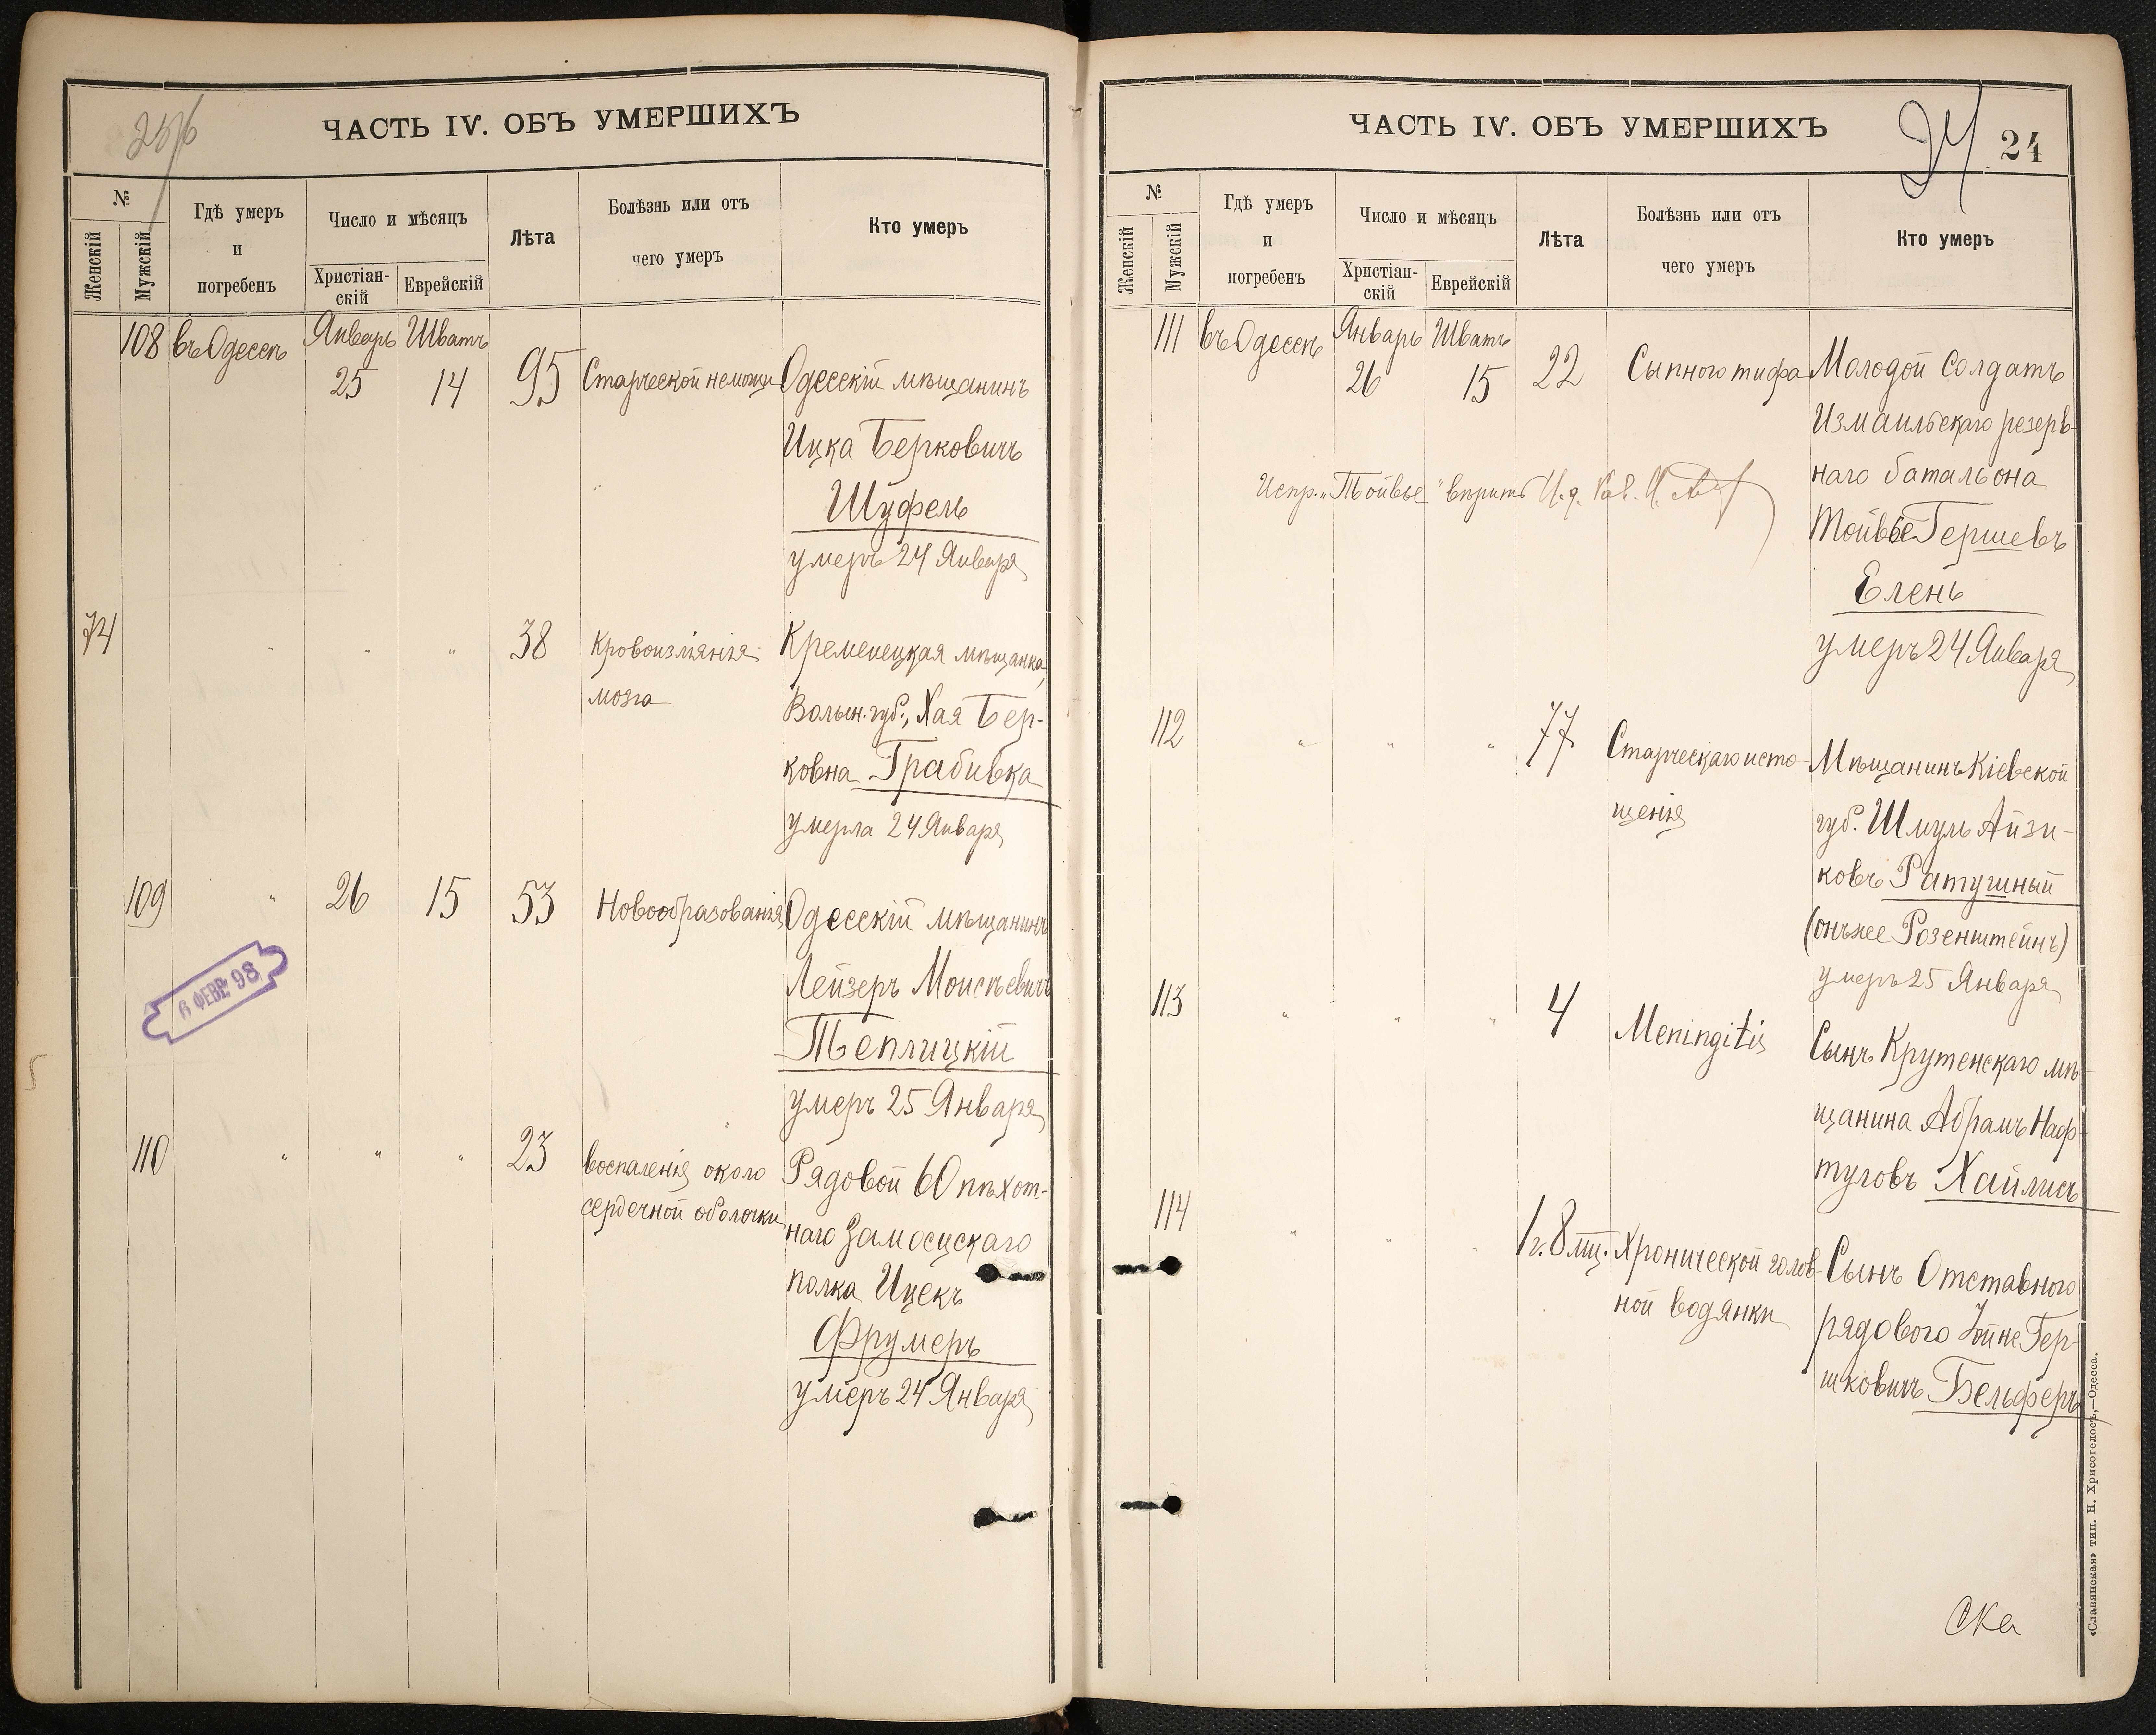 256
ЧАСТЬ IV. ОБЪ УМЕРШИХЪ
№
Женскій
Мужскій
Гдѣ умеръ
и
погребенъ
Число и мѣсяцъ
Христіан-
скій
Еврейскій
Лѣта
Болѣзнь или отъ
чего умеръ
Кто умеръ
108 въ Одессѣ Январь Шватъ
25 14 95 Старческой немощи Одесскій мѣщанинъ
Ицка Берковичъ
Шуфель
умеръ 24 Января
74 " " " 38 Кровоизліянія Кременецкая мѣщанка,
мозга Волын. губ., Хая Бер-
ковна Грабивка
умерла 24 Января
109 " 26 15 53 Новообразованія Одесскій мѣщанинъ
Лейзеръ Моисѣевичъ
Теплицкій
умеръ 25 Января
6 ФЕВР. 98
110 " " " 23 воспаленія около Рядовой 60 пѣхот-
сердечной оболочки наго Замосцскаго
полка Ицекъ
Фрумеръ
умеръ 24 Января
ЧАСТЬ IV. ОБЪ УМЕРШИХЪ
24
24
№
Женскій
Мужскій
Гдѣ умеръ
и
погребенъ
Число и мѣсяцъ
Христіан-
скій
Еврейскій
Лѣта
Болѣзнь или отъ
чего умеръ
Кто умеръ
111 въ Одессѣ Январь Шватъ
26 15 22 Сыпного тифа Молодой солдатъ
Измаильскаго резерв-
наго батальона
Испр. "Тойвье" вѣрить И. д. Рав.
Тойвье Гершевъ
Елень
умеръ 24 Января
112 " " " 77 Старческаго исто- Мѣщанинъ Кіевской
щенія губ. Шмуль Айзи-
ковъ Ратушный
(онъ же Розенштейнъ)
умеръ 25 Января
113 " " " 4 Meningitis Сынъ Крутенскаго мѣ-
щанина Абрамъ Наф-
туловъ Хайлисъ
114 " " " 1 г. 8 мц. Хронической голов- Сынъ Отставного
ной водянки рядового Іойне Гер-
шковичъ Бельферъ
ска
«Славянская» тип. Н. Хрисогелосъ,—Одесса.